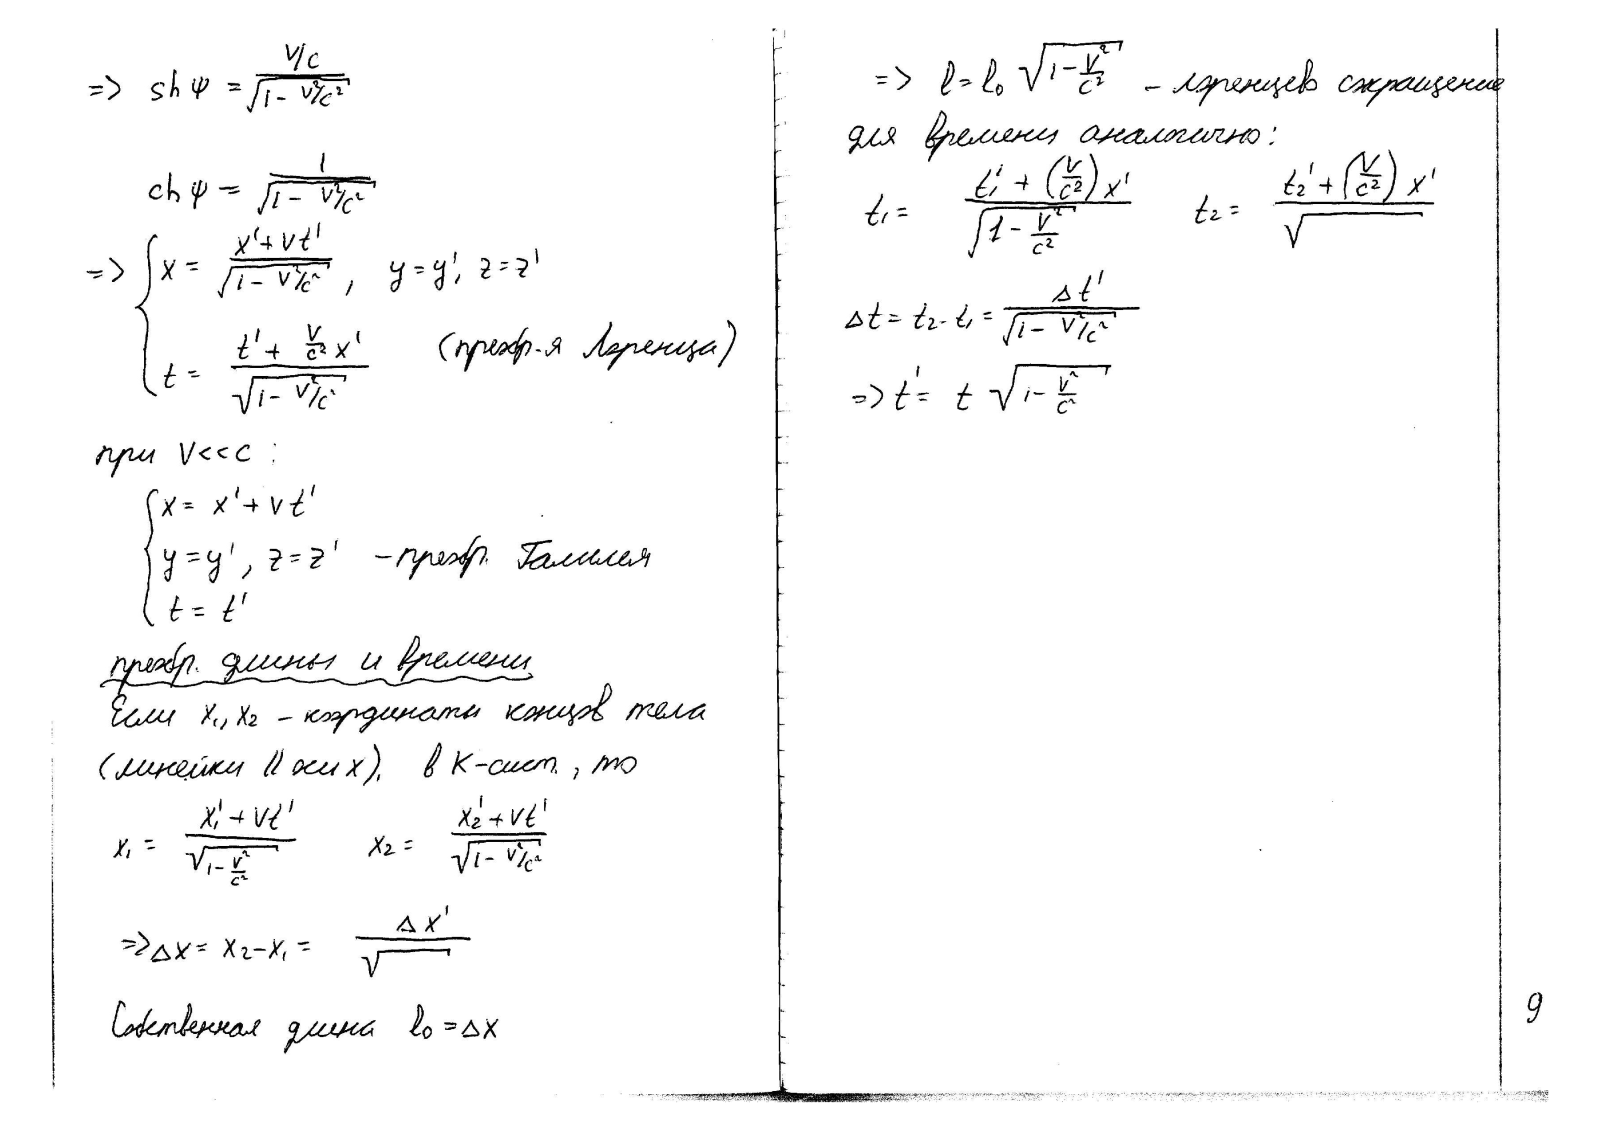 => sh ψ = (V/c)/√(1 - V²/c²)
ch ψ = 1/√(1 - V²/c²)
=> { x = (x' + Vt')/√(1 - V²/c²), y = y', z = z'
t = (t' + (V/c²) x')/√(1 - V²/c²) (преобр-я Лоренца)
при V<<c :
{ x = x' + Vt'
y = y', z = z' - преобр. Галилея
t = t'
преобр. длины и времени
Если x₁, x₂ - координаты концов тела
(линейки || оси x), в K-сист., то
x₁ = (x₁' + Vt')/√(1 - V²/c²) x₂ = (x₂' + Vt')/√(1 - V²/c²)
=> Δx = x₂ - x₁ = Δx'/√
Собственная длина l₀ = Δx
=> l = l₀ √(1 - V²/c²) - лоренцев сокращение
для времени аналогично:
t₁ = (t₁' + (V/c²) x')/√(1 - V²/c²) t₂ = (t₂' + (V/c²) x')/√
Δt = t₂ - t₁ = Δt'/√(1 - V²/c²)
=> t' = t √(1 - V²/c²)
9